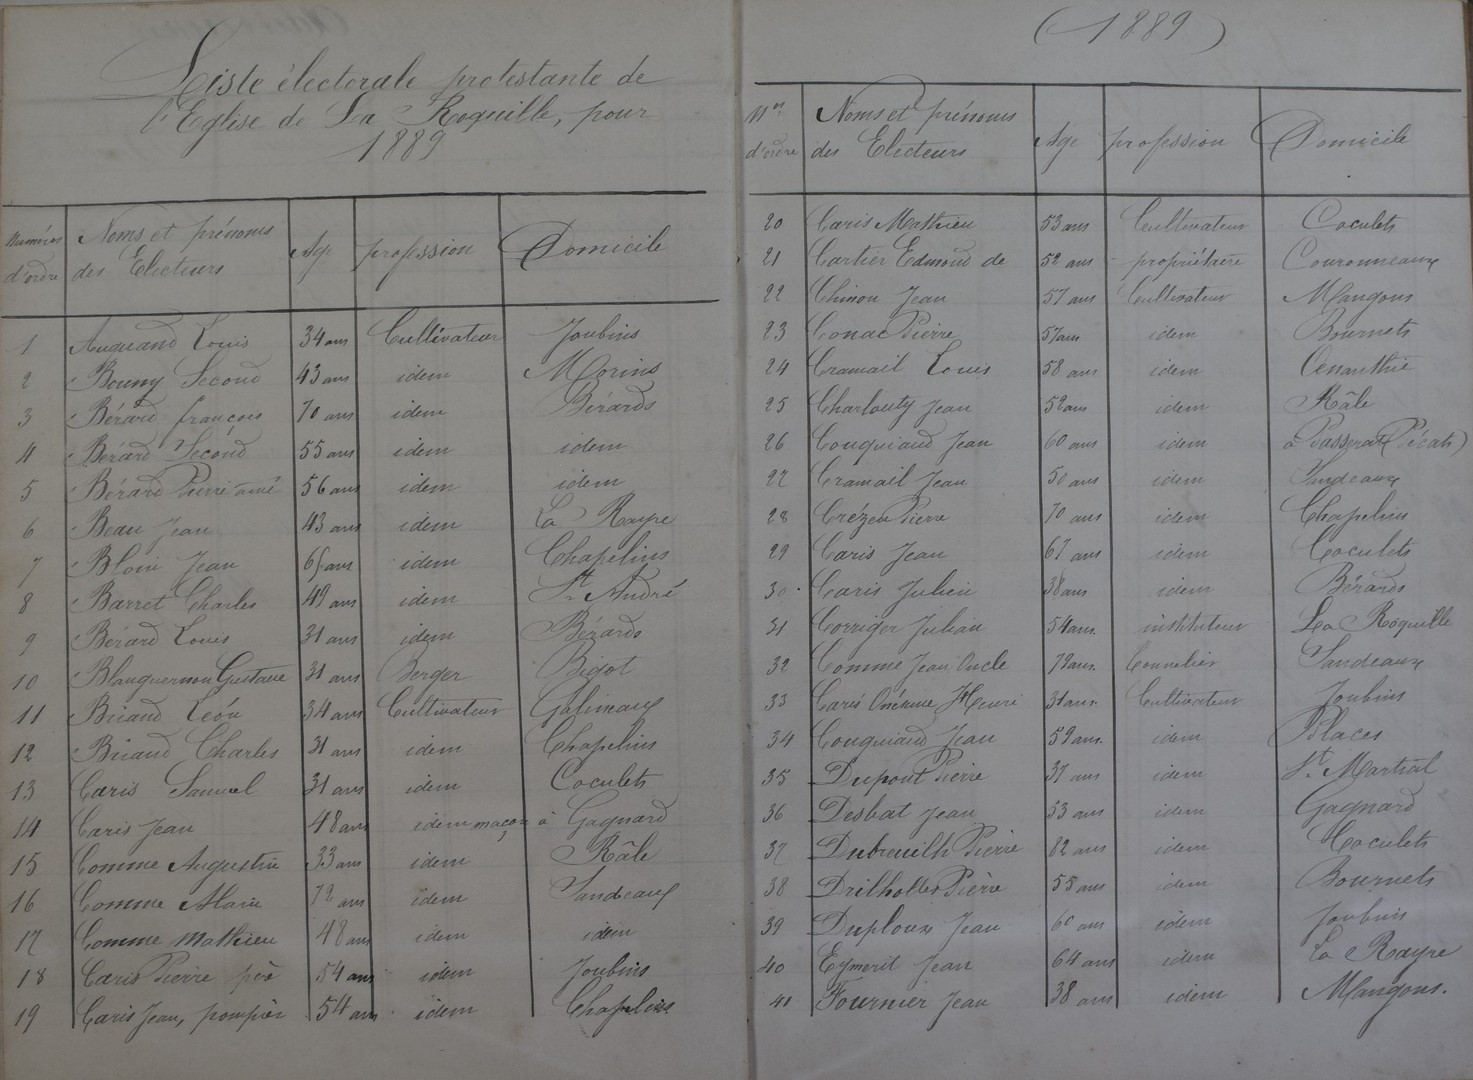 Liste électorale protestante de
l'Eglise de La Roquille, pour
1889
Numéros d'ordre Noms et prénoms des Electeurs Age profession Domicile
1 Auguand Louis 34 ans Cultivateur Joubins
2 Bouny Second 43 ans idem Morins
3 Bérard françois 70 ans idem Bérards
4 Bérard Second 55 ans idem idem
5 Bérard Pierre ainé 56 ans idem idem
6 Beau Jean 43 ans idem La Rayre
7 Bloin Jean ans idem Chapelins
8 Barret Charles 49 ans idem St. André
9 Bérard Louis 31 ans idem Bérards
10 Blanquernon Gustave 31 ans Berger Bigot
11 Briand León 34 ans Cultivateur Galineaux
12 Briand Charles 31 ans idem Chapelins
13 Caris Samuel 31 ans idem Coculets
14 Caris Jean 48 ans idem maçon à Gagnard
15 Comme Augustin 33 ans idem Râle
16 Comme Alain 72 ans idem Sandeaux
17 Comme Mathieu 48 ans idem idem
18 Caris Pierre père 54 ans idem Joubins
19 Caris Jean, pompier 54 ans idem Chapelins
(1889)
Nos d'ordre Noms et prénoms des Electeurs Age profession Domicile
20 Caris Mathieu 53 ans Cultivateur Coculets
21 Cartier Edmond de 52 ans propriétaire Couronneaux
22 Chinon Jean 57 ans Cultivateur Mangons
23 Conac Pierre 57 ans idem Bournets
24 Cramail Louis 58 ans idem
25 Charlouty Jean 52 ans idem Râle
26 Couquiaud Jean 60 ans idem à Passerat (Pécats)
27 Cramail Jean 50 ans idem Sandeaux
28 Crézen Pierre 70 ans idem Chapelins
29 Caris Jean 67 ans idem Coculets
30 Caris Julien 38 ans idem Bérards
31 Corriger Julian 54 ans. instituteur La Roquille
32 Comme Jean Oncle 79 ans. Tonnelier Sandeaux
33 Caris Onésime Henri 31 ans. Cultivateur Joubins
34 Couquiaud Jean 59 ans. idem Places
35 Dupont Pierre 37 ans idem St. Martial
36 Desbat Jean 53 ans idem Gagnard
37 Dubreuilh Pierre 82 ans idem Coculets
38 Drilholles Pierre 55 ans idem Bournets
39 Duploux Jean 60 ans idem Joubins
40 Eymerit Jean 64 ans idem La Rayre
41 Fournier Jean 38 ans idem Mangons.